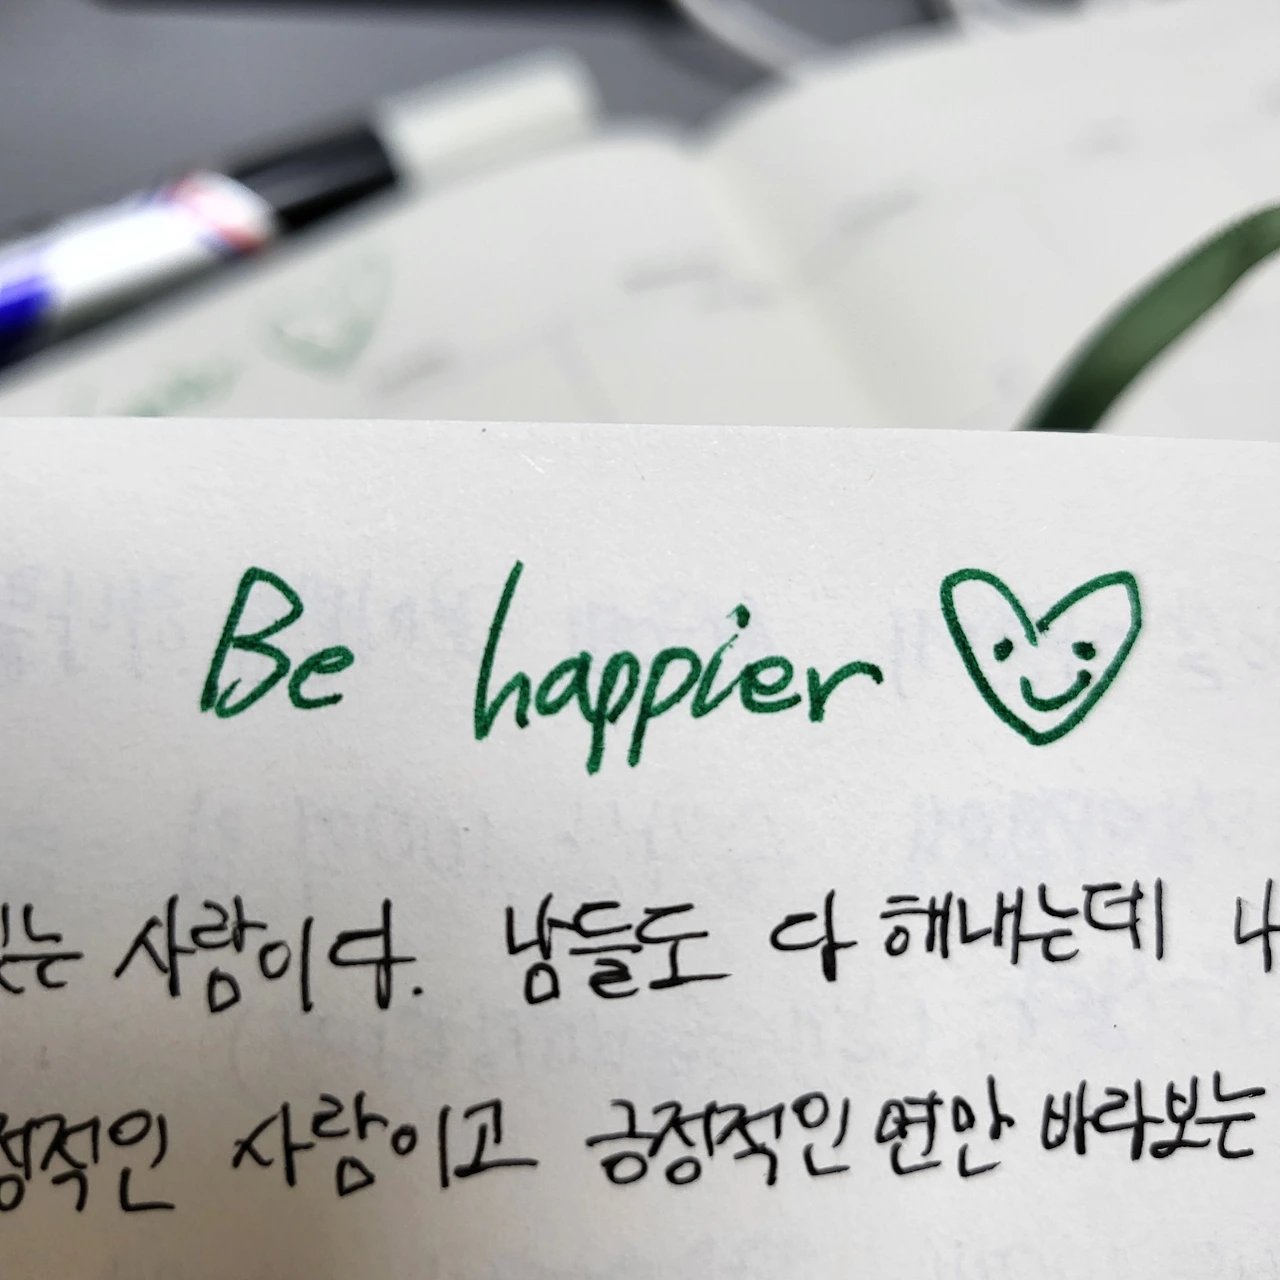 Be happier
있는 사람이다. 남들도 다 해내는데 나
정적인 사람이고 긍정적인 면만 바라보는